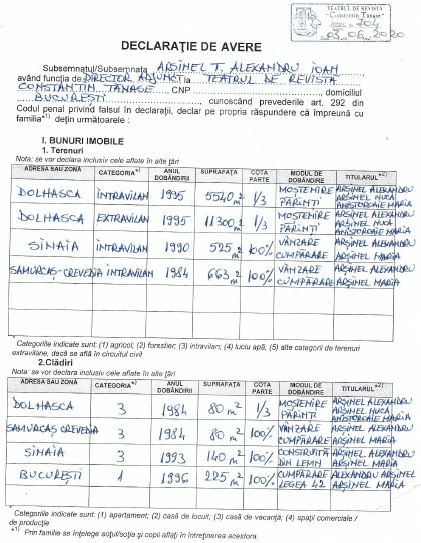 TEATRUL DE REVISTĂ
"Constantin Tănase"
704
03.06.2020
DECLARAŢIE DE AVERE
Subsemnatul/Subsemnata ARŞINEL T. ALEXANDRU IOAN
având funcţia de DIRECTOR ADJUNCT la TEATRUL DE REVISTA
CONSTANTIN TĂNASE, CNP, domiciliul
BUCUREŞTI, cunoscând prevederile art. 292 din
Codul penal privind falsul în declaraţii, declar pe propria răspundere că împreună cu
familia*1) deţin următoarele :
I. BUNURI IMOBILE
1. Terenuri
Nota: se vor declara inclusiv cele aflate în alte ţări
ADRESA SAU ZONĂ CATEGORIA*) ANUL DOBÂNDIRII SUPRAFAŢA COTA PARTE MODUL DE DOBÂNDIRE TITULARUL*2)
DOLHASCA INTRAVILAN 1995 5540 m2 1/3 MOŞTENIRE PĂRINTI ARŞINEL ALEXANDRU ARŞINEL NUCA ANISTOROAIE MARIA
DOLHASCA EXTRAVILAN 1995 11300 m2 1/3 MOŞTENIRE PĂRINTI ARŞINEL ALEXANDRU ARŞINEL NUCA ANISTOROAIE MARIA
SINAIA INTRAVILAN 1990 525 m2 100% VÂNZARE CUMPĂRARE ARŞINEL ALEXANDRU ARŞINEL MARIA
SAMURCAŞ-CREVEDIA INTRAVILAN 1984 663 m2 100% VÂNZARE CUMPĂRARE ARŞINEL ALEXANDRU ARŞINEL MARIA
*Categoriile indicate sunt: (1) agricol; (2) forestier; (3) intravilan; (4) luciu apă; (5) alte categorii de terenuri
extravilane, dacă se află în circuitul civil
2.Clădiri
Nota: se vor declara inclusiv cele aflate în alte ţări
ADRESA SAU ZONA CATEGORIA*) ANUL DOBÂNDIRII SUPRAFAŢA COTA PARTE MODUL DE DOBÂNDIRE TITULARUL*2)
DOLHASCA 3 1984 80 m2 1/3 MOŞTENIRE PĂRINTI ARŞINEL ALEXANDRU ARŞINEL NUCA ANISTOROAIE MARIA
SAMURCAŞ, CREVEDIA 3 1984 80 m2 100% VÂNZARE CUMPĂRARE ARŞINEL ALEXANDRU ARŞINEL MARIA
SINAIA 3 1993 140 m2 100% CONSTRUITĂ DIN LEMN ARŞINEL ALEXANDRU ARŞINEL MARIA
BUCUREŞTI 1 1996 225 m2 100% CUMPĂRARE LEGEA 42 ALEXANDRU ARŞINEL ARŞINEL MARIA
*Categoriile indicate sunt: (1) apartament; (2) casă de locuit; (3) casă de vacanţă; (4) spaţii comerciale /
de producţie
*1) Prin familie se înţelege soţul/soţia şi copiii aflaţi în întreţinerea acestora.